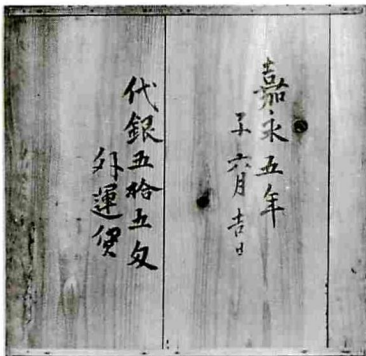 嘉永五年
子六月吉日
代銀五拾五匁
外運賃